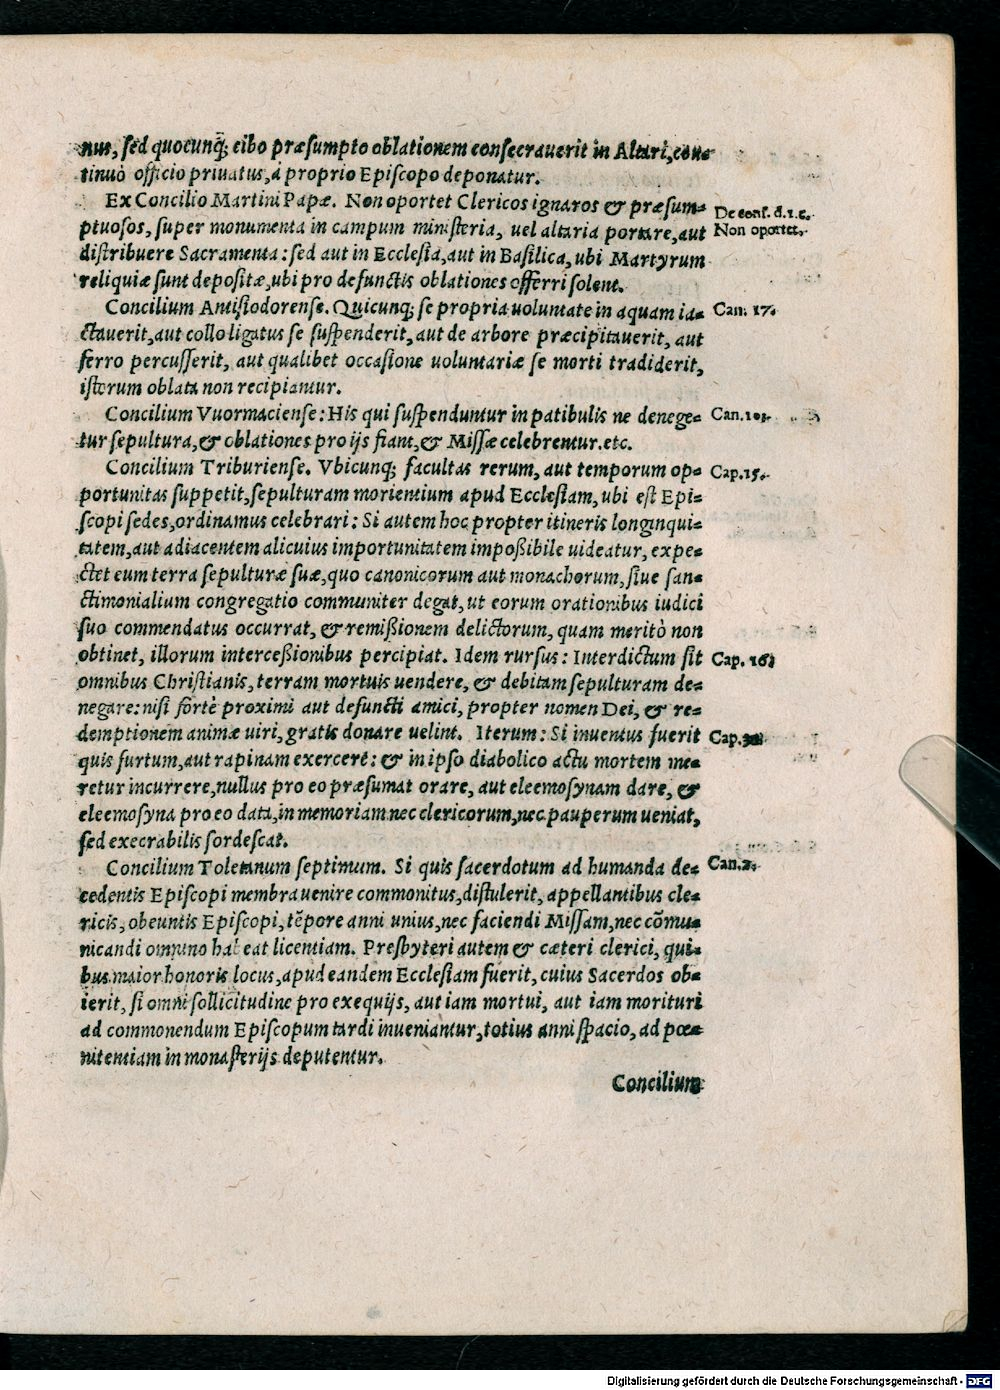 nus, sed quocunq; cibo præsumpto oblationem consecrauerit in Altari, con=
tinuò officio priuatus, á proprio Episcopo deponatur.
Ex Concilio Martini Papæ. Non oportet Clericos ignaros & præsum=
De cons. d.1.c.
ptuosos, super monumenta in campum ministeria, uel altaria portare, aut
Non oportet.
distribuere Sacramenta: sed aut in Ecclesia, aut in Basilica, ubi Martyrum
reliquiæ sunt depositæ, ubi pro defunctis oblationes offerri solent.
Concilium Antisiodorense. Quicunq; se propria uoluntate in aquam ia=
Can. 17.
ctauerit, aut collo ligatus se suspenderit, aut de arbore præcipitauerit, aut
ferro percusserit, aut qualibet occasione uoluntariæ se morti tradiderit,
istorum oblata non recipiantur.
Concilium Vuormaciense: His qui suspenduntur in patibulis ne denege=
Can.103.
tur sepultura, & oblationes pro ijs fiant, & Missæ celebrentur.etc.
Concilium Triburiense. Vbicunq; facultas rerum, aut temporum op=
Cap.15.
portunitas suppetit, sepulturam morientium apud Ecclesiam, ubi est Epi=
scopi sedes, ordinamus celebrari: Si autem hoc propter itineris longinqui=
tatem, aut adiacentem alicuius importunitatem impoßibile uideatur, expe=
ctet eum terra sepulturæ suæ, quo canonicorum aut monachorum, siue san=
ctimonialium congregatio communiter degat, ut eorum orationibus iudici
suo commendatus occurrat, & remißionem delictorum, quam meritò non
obtinet, illorum interceßionibus percipiat. Idem rursus: Interdictum sit
Cap. 16.
omnibus Christianis, terram mortuis uendere, & debitam sepulturam de=
negare: nisi fortè proximi aut defuncti amici, propter nomen Dei, & re=
demptionem animæ uiri, gratis donare uelint. Iterum: Si inuentus fuerit
Cap.
quis furtum, aut rapinam exercere: & in ipso diabolico actu mortem me=
retur incurrere, nullus pro eo præsumat orare, aut eleemosynam dare, &
eleemosyna pro eo data, in memoriam nec clericorum, nec pauperum ueniat,
sed execrabilis sordescat.
Concilium Toletanum septimum. Si quis sacerdotum ad humanda de=
Can.2.
cedentis Episcopi membra uenire commonitus, distulerit, appellantibus cle=
ricis, obeuntis Episcopi, tẽpore anni unius, nec faciendi Missam, nec cõmu=
nicandi omnino habeat licentiam. Presbyteri autem & cæteri clerici, qui=
bus maior honoris locus, apud eandem Ecclesiam fuerit, cuius Sacerdos ob=
ierit, si omni sollicitudine pro exequijs, aut iam mortui, aut iam morituri
ad commonendum Episcopum tardi inueniantur, totius anni spacio, ad pœ=
nitentiam in monasterijs deputentur.
Concilium
Digitalisierung gefördert durch die Deutsche Forschungsgemeinschaft - DFG